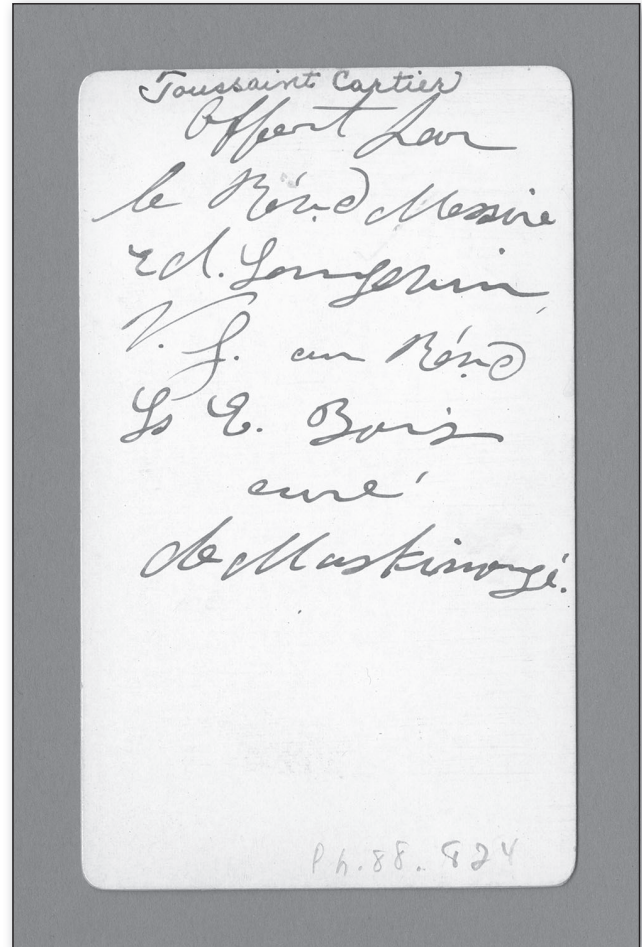 Toussaint Cartier
Offert par
le Révd Messire
Ed. Langevin,
V. G. au Révd
Ls E. Bois
curé
de Maskinongé.
Ph.88.824